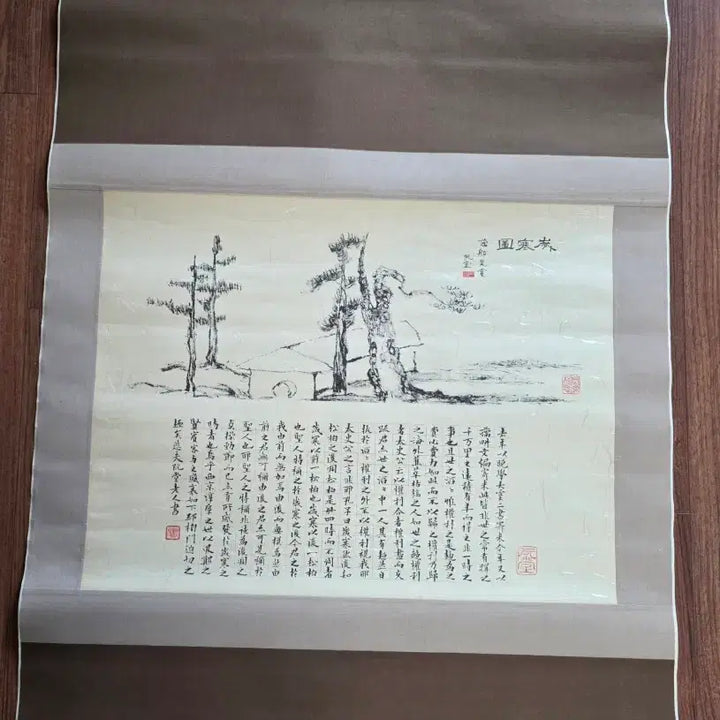 歲寒圖
藕船是賞
阮堂
去年以晚學大雲二書寄來今年又以
藕畊文編寄來此皆非世之常有購之
千万里之遠積有年而得之非一時之
事也且世之滔〻惟權利之是趨爲之
費心費力如此而不以歸之權利乃歸
之海外蕉萃枯稿之人如世之趨權利
者太史公云以權利合者權利盡而交
踈君亦世之滔〻中一人其有超然自
拔於滔〻權利之外不以權利視我耶
太史公之言非耶孔子曰歲寒然後知
松柏之後凋松柏是毌四時而不凋者
歲寒以前一松柏也歲寒以後一松柏
也聖人特稱之於歲寒之後今君之於
我由前而無加焉由後而無損焉然由
前之君無可稱由後之君亦可見稱於
聖人也耶聖人之特稱非徒爲後凋之
貞操勁節而已亦有所感發於歲寒之
時者也烏乎西京淳厚之世以汲鄭之
賢賓客與之盛衰如下邳榜門迫切之
極矣悲夫阮堂老人書